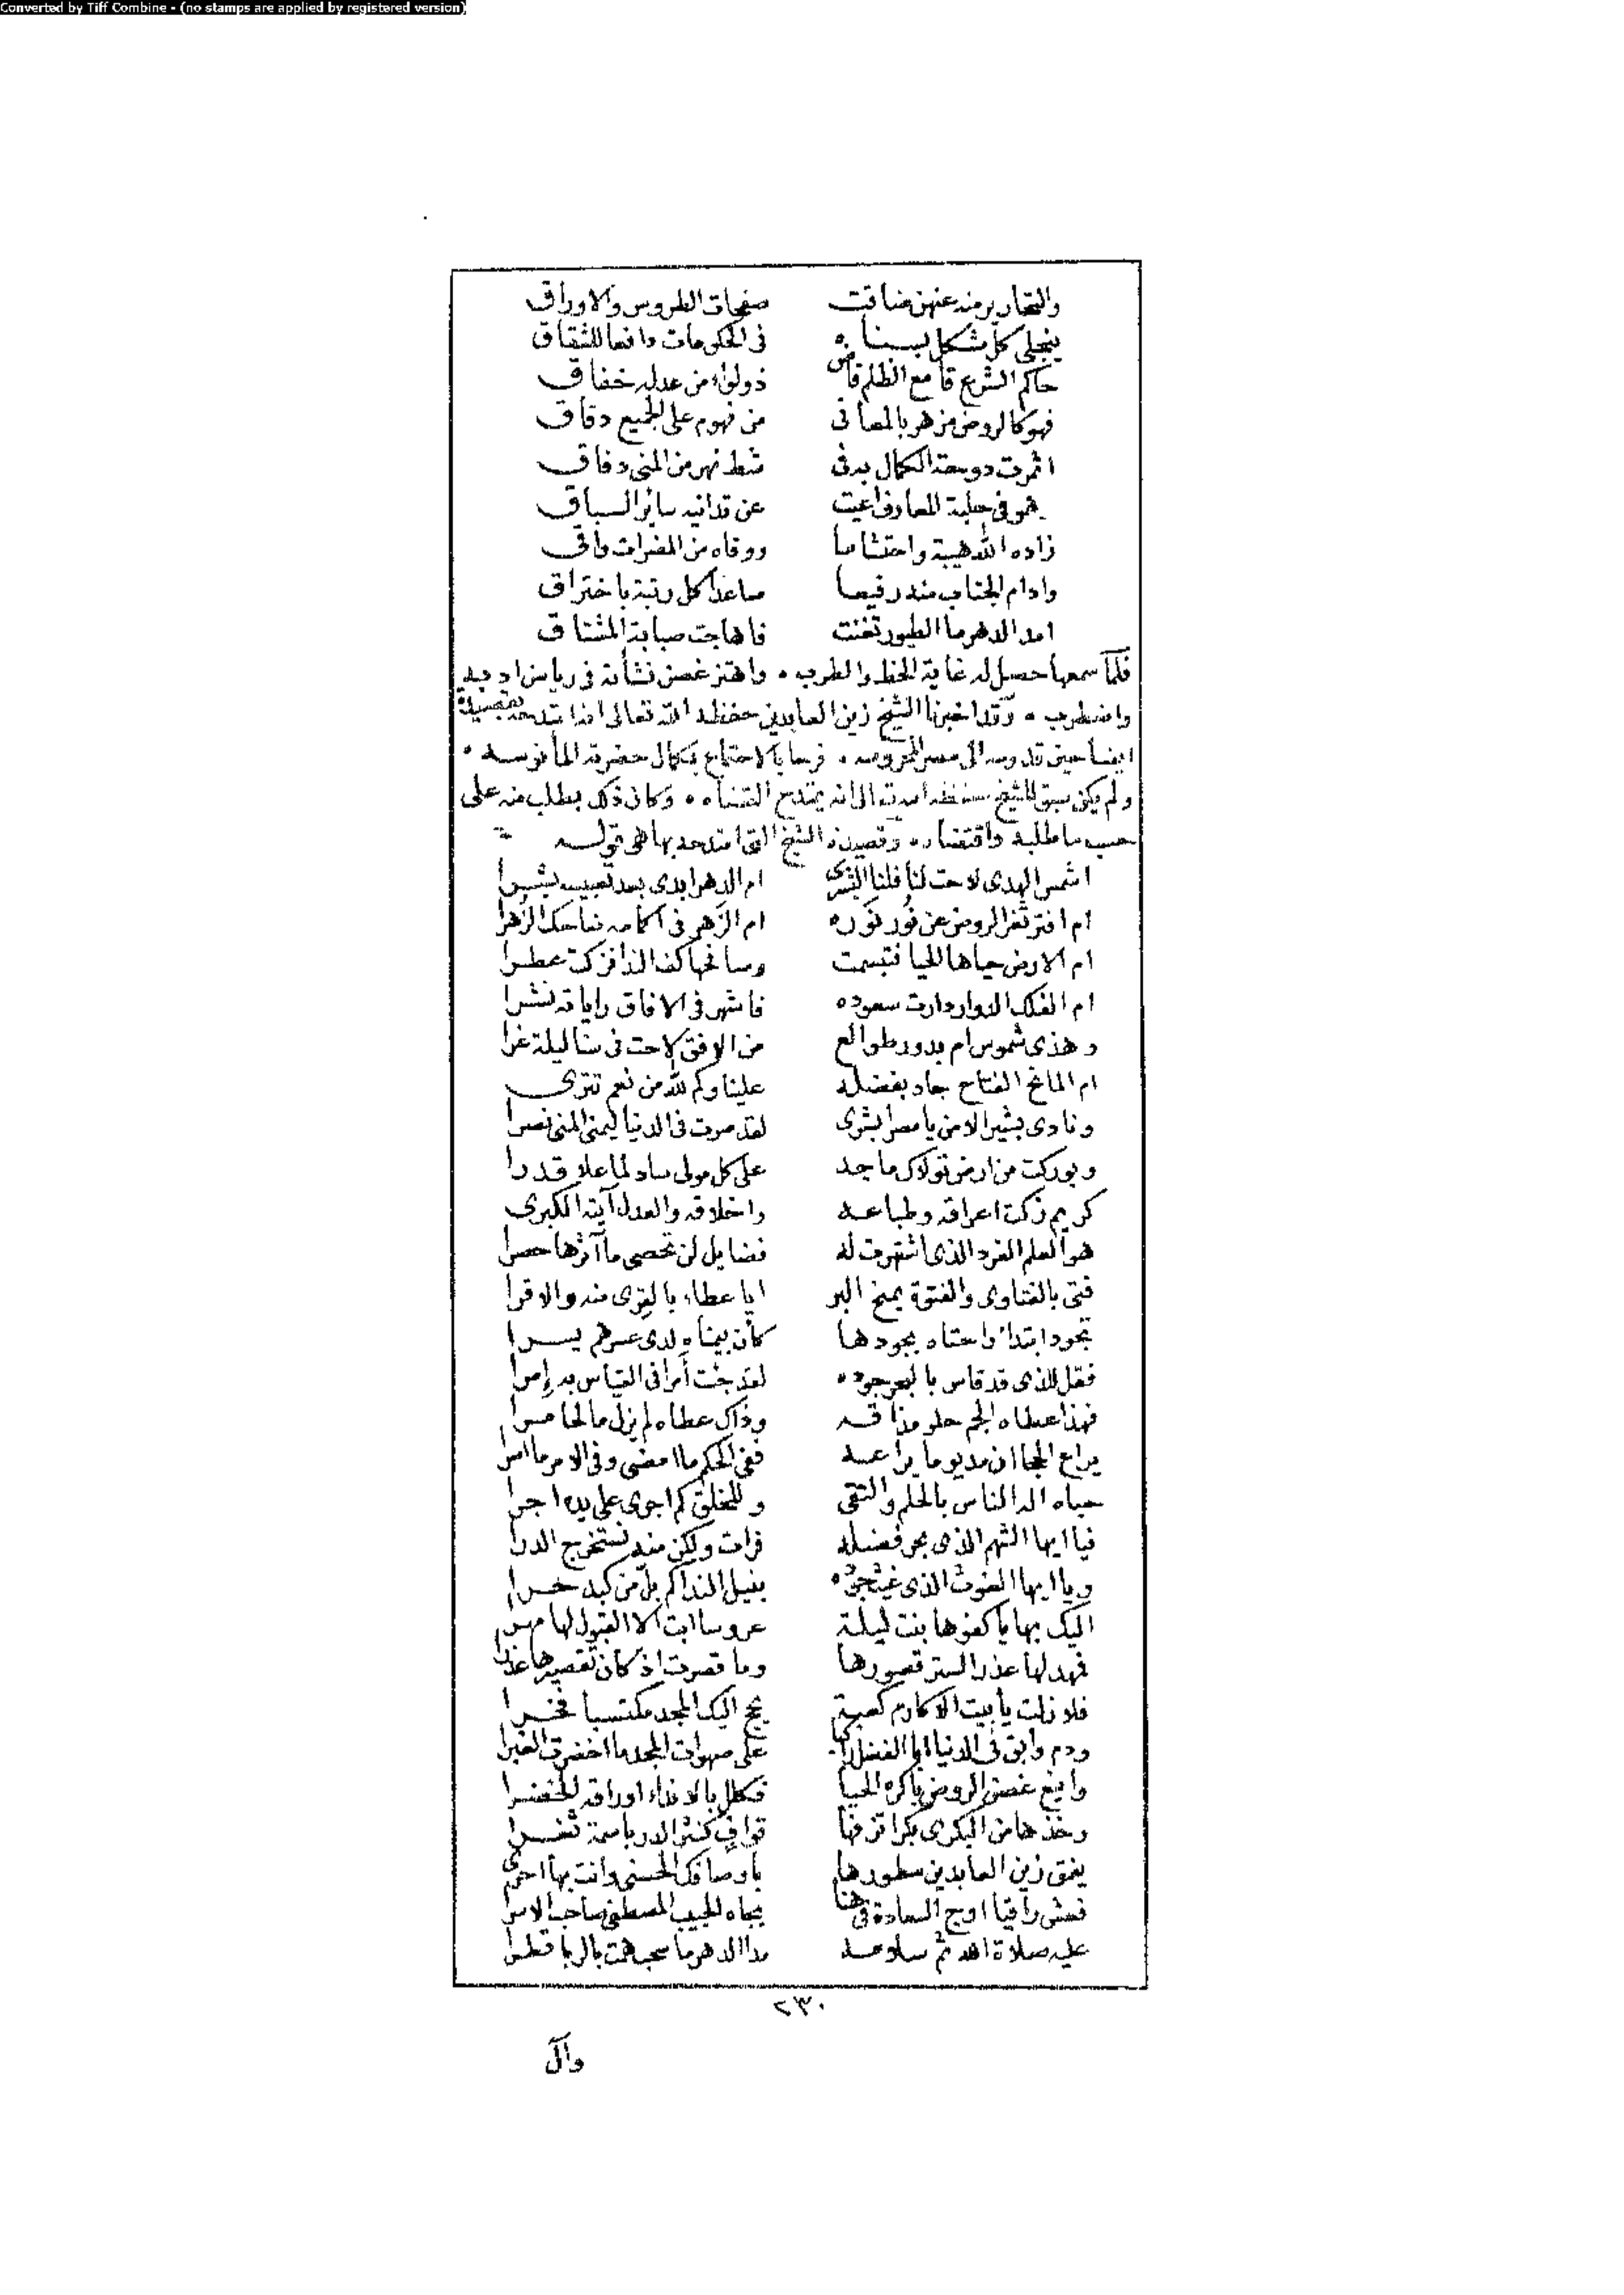 Converted by Tiff Combine - (no stamps are applied by registered version)
والتحارير منه عنهن ضاقت صفحات الطروس والاوراق
ينجلي كل مشكل بسناه فى الحكومات دافعا للشقاق
حاكم الشرع قامع الظلم قاض ذو لواء من عدله خفاق
فهو كالروض مزهر بالمعانى من فهوم على الجميع دقاق
اثمرت دوحة الكمال بدنى شط نهر من المنى دفاق
هو فى حلبة المعارف اعيت عن تدانيه سائر السباق
زاده الله هيبة واحتشاما ووقاه من المضرات واقى
وادام الجناب منه رفيعا صاعدا كل رتبة باختراق
امد الدهر ما الطيور تغنت فاهاجت صبابة المشتاق
فلما سمعها حصل له غاية الحظ والطرب ٠ واهتز غصن نشأته فى رياض ادبه
واضطرب ٠ وقد اخبرنا الشيخ زين العابدين حفظه الله تعالى انه امتدحه بقصيدة
ايضا حين قدومه الى مصر المحروسه ٠ فرحا بالاجتماع بكمال حضرته المأنوسه ٠
ولم يكن سبق للشيخ حفظه الله تعالى انه يمتدح القضاه ٠ وكان ذلك بطلب منه على
حسب ما طلبه واقتضاه ٠ وقصيدة الشيخ التى امتدحه بها هى قوله
اشمس الهدى لاحت لنا فلنا البشرى ام الدهر ابدى بعد تعبيسه بشرا
ام افتر ثغر الروض عن نور نوره ام الزهر فى اكمامه ضاحك الزهرا
ام الارض حياها الحيا فتبسمت وصافحها كف الندا فزكت عطرا
ام الفلك الدوار دارت سعوده فاشهر فى الافاق راياته نشرا
وهذى شموس ام بدور طوالع من الافق لاحت فى سنا ليلة غرا
ام المانح الفتاح جاد بفضله علينا وكم لله من نعم تترى
ونادى بشير الامن يا مصر ابشرى لقد صرت فى الدنيا ليمنى المنى نصرا
وبوركت من ارض تولاك ماجد على كل مولى ساد لما علا قدرا
كريم زكت اعراقه وطباعه واخلاقه والعدل آيته الكبرى
هو العلم الفرد الذى اشتهرت له فضايل لن تحصى مآثرها حصرا
فتى بالفتاوى والفتوة يمنح البر ايا عطاء بالقرى منه والاقرا
تجود ابتداء راحتاه بجودها كأن بيمناه لدى عسرهم يسرا
فقل للذى قد قاس بالبحر جوده لقد جئت امرا فى القياس به إمرا
فهذا عطاه الجم حلو مذاقه وذاك عطاه لم يزل مالحا مرا
يراع الحجا ان مد يوما يراعه ففى الحكم ما امضى وفى الامر ما امرا
حباه اله الناس بالحلم والتقى وللخلق كم اجرى على يده اجرا
فيا ايها الشهم الذى بحر فضله فرات ولكن منه نستخرج الدرا
ويا ايها الغوث الذى غيث جوده بنيل الندا كم بل من كبد حرا
اليك بها يا كفوها بنت ليلة عروسا ابت الا القبول لها مهرا
فمهد لها عذرا لستر قصورها وما قصرت اذ كان تقصيرها عذرا
فلا زلت يا بيت الاكارم كعبة يحج اليك المجد مكتسبا فخرا
ودم وابق فى الدنيا ابا الفضل راكبا على صهوات المجد ما اخضرت الغبرا
واينع غصن الروض باكره الحيا فكلل بالانداء اوراقه الخضرا
وخذها من البكرى بكرا تزفها قواف كنثر الدر باسمة ثغرا
ينمق زين العابدين سطورها باوصافك الحسنى وانت بها احرى
فعش راقيا اوج السعادة فى هنا بجاه الحبيب المصطفى صاحب الاسرا
عليه صلاة الله ثم سلامه مدا الدهر ما سحب همت بالربا قطرا
٢٣٠
وآل